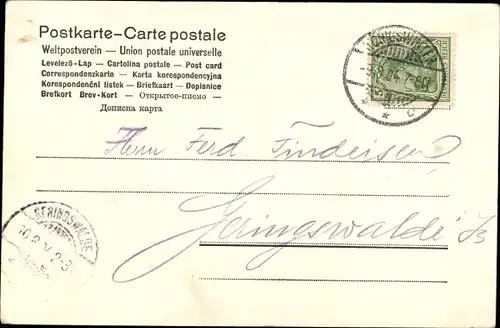 Postkarte–Carte postale
Weltpostverein – Union postale universelle
Levelező-Lap – Cartolina postale – Post card
Correspondenzkarte – Karta korespondencyjna
Korespondenční listek – Briefkaart – Dopisnice
Brefkort Brev-Kort – Открытое-письмо –
Дописна карта
Herrn Ferd Findeisen
Geringswalde
GERINGSWALDE